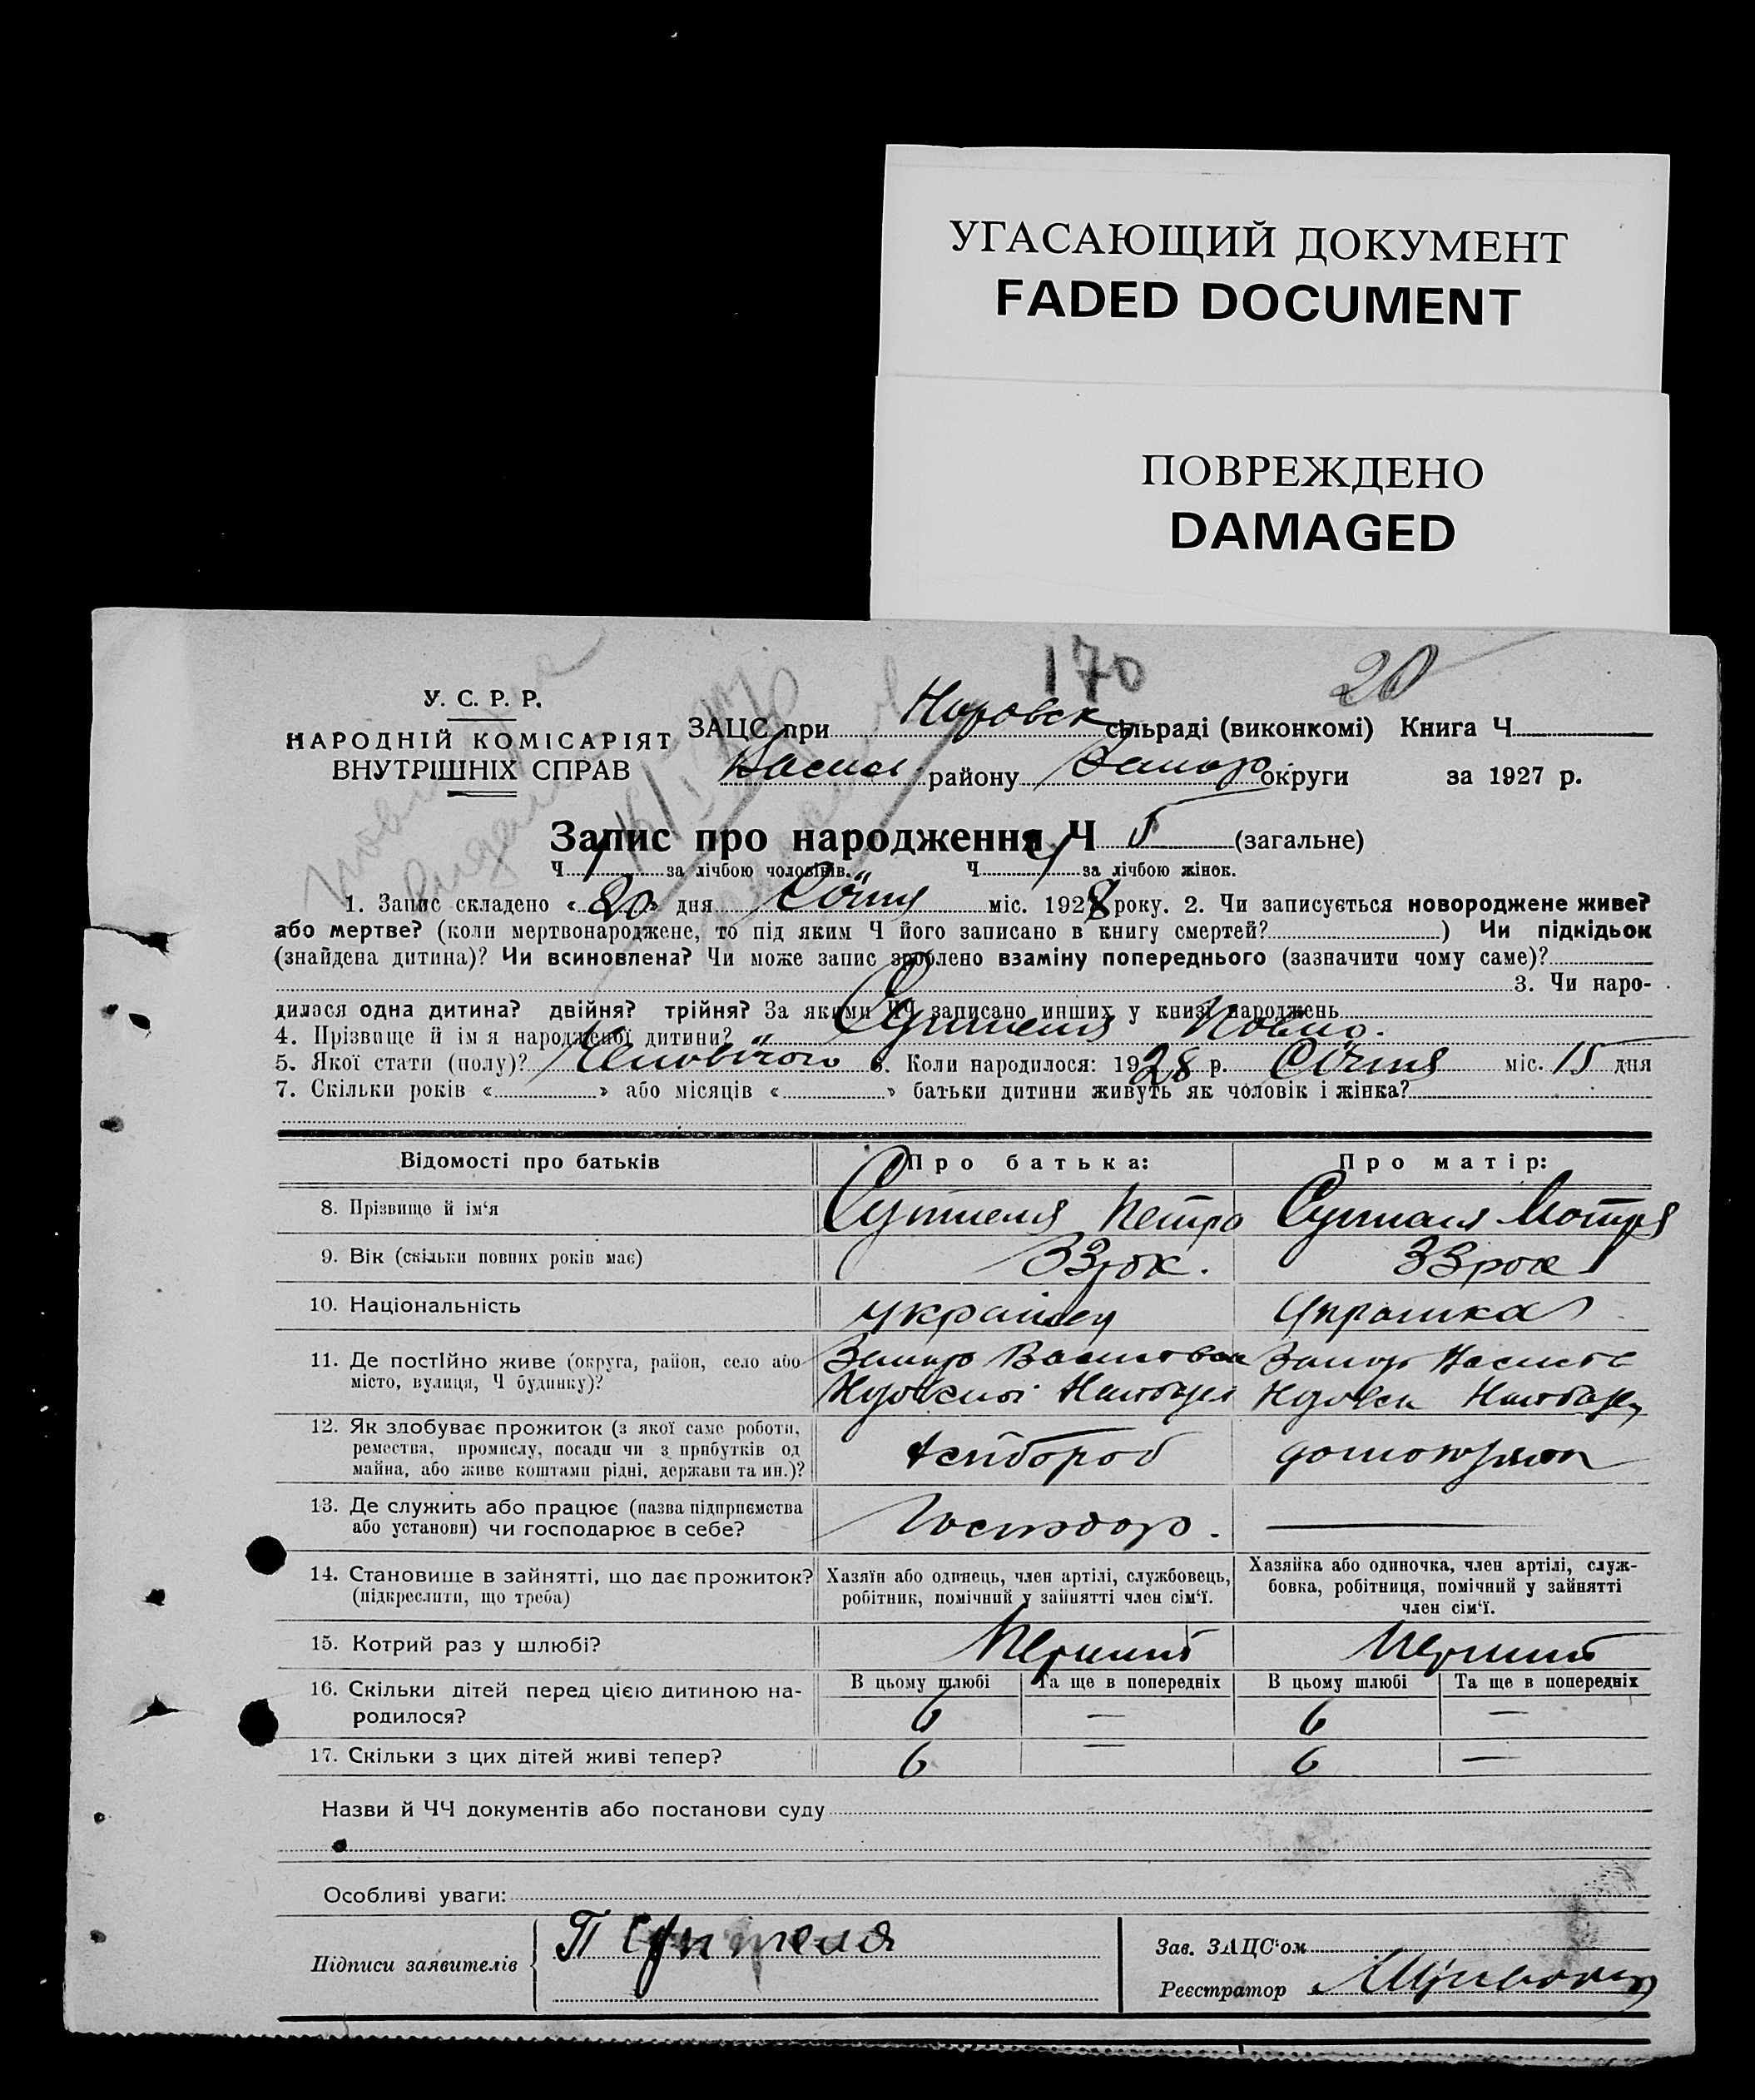 УГАСАЮЩИЙ ДОКУМЕНТ
FADED DOCUMENT
ПОВРЕЖДЕНО
DAMAGED
170
20
У. С. Р. Р.
НАРОДНІЙ КОМІСАРІЯТ
ВНУТРІШНІХ СПРАВ
ЗАЦС при сільраді (виконкомі) Книга Ч
району округи за 1927 р.
Запис про народження Ч 5 (загальне)
Ч 1 за лічбою чоловіків. Ч 4 за лічбою жінок.
1. Запис складено « 20 » дня Січня міс. 1928 року. 2. Чи записується новороджене живе?
або мертве? (коли мертвонароджене, то під яким Ч його записано в книгу смертей? ) Чи підкідьок
(знайдена дитина)? Чи всиновлена? Чи може запис зроблено взаміну попереднього (зазначити чому саме)?
3. Чи наро-
дилася одна дитина? двійня? трійня? За якими ЧЧ записано инших у книзі народжень
4. Прізвище й ім'я народженої дитини?
5. Якої стати (полу)? Чоловічого 6. Коли народилося: 1928 р. Січня міс. 15 дня
7. Скільки років « » або місяців « » батьки дитини живуть як чоловік і жінка?
Відомості про батьків
Про батька:
Про матір:
8. Прізвище й ім'я
Петро
Мотря
9. Вік (скільки повних років має)
33 рок.
33 рок
10. Національність
українец
Українка
11. Де постійно живе (округа, район, село або
місто, вулиця, Ч будинку)?
12. Як здобуває прожиток (з якої саме роботи,
ремества, промислу, посади чи з прибутків од
майна, або живе коштами рідні, держави та ин.)?
хлібороб
13. Де служить або працює (назва підприємства
або установи) чи господарює в себе?
Господар.
14. Становище в зайнятті, що дає прожиток?
(підкреслити, що треба)
Хазяїн або одинець, член артілі, службовець,
робітник, помічний у зайнятті член сім'ї.
Хазяйка або одиночка, член артілі, служ-
бовка, робітниця, помічний у зайнятті
член сім'ї.
15. Котрий раз у шлюбі?
Перший
Перший
16. Скільки дітей перед цією дитиною на-
родилося?
В цьому шлюбі
Та ще в попередніх
В цьому шлюбі
Та ще в попередніх
6 — 6 —
17. Скільки з цих дітей живі тепер?
6 — 6 —
Назви й ЧЧ документів або постанови суду
Особливі уваги:
Підписи заявителів
П
Зав. ЗАЦС'ом
Реєстратор